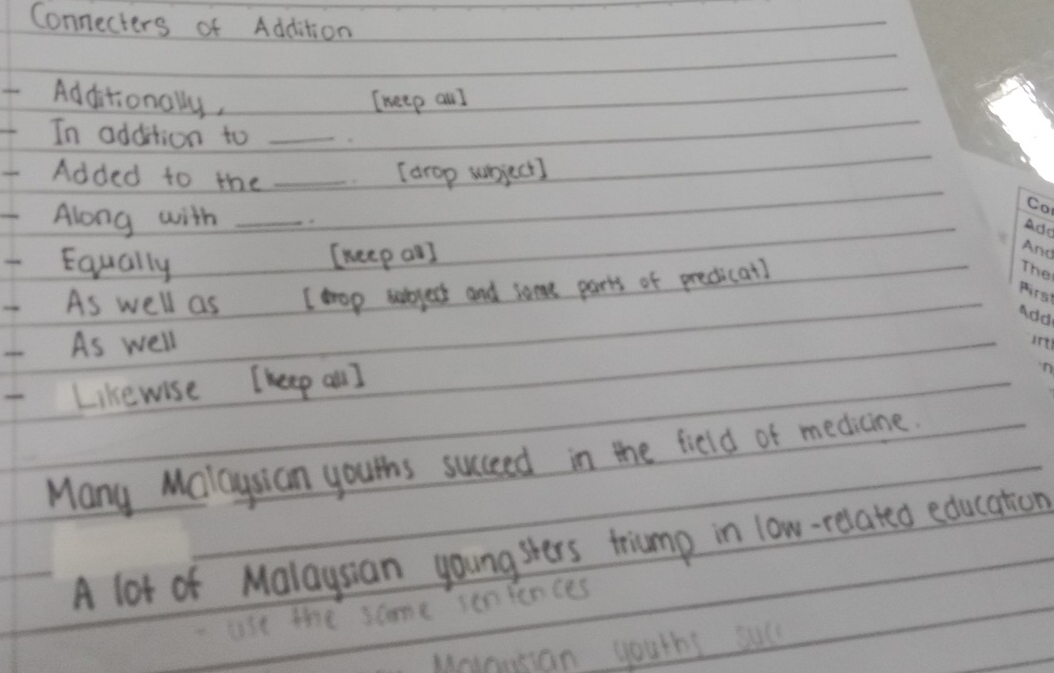 Connecters of Addition
- Additionally, [keep all]
- In addition to ____.
- Added to the ____. [drop subject]
- Along with ____.
- Equally [keep all]
- As well as [drop subject and some parts of predicat]
- As well
- Likewise [keep all]
Many Malaysian youths succeed in the field of medicine.
A lot of Malaysian youngsters triump in low-related education
- use the same sentences
Malaysian youths
Add
And